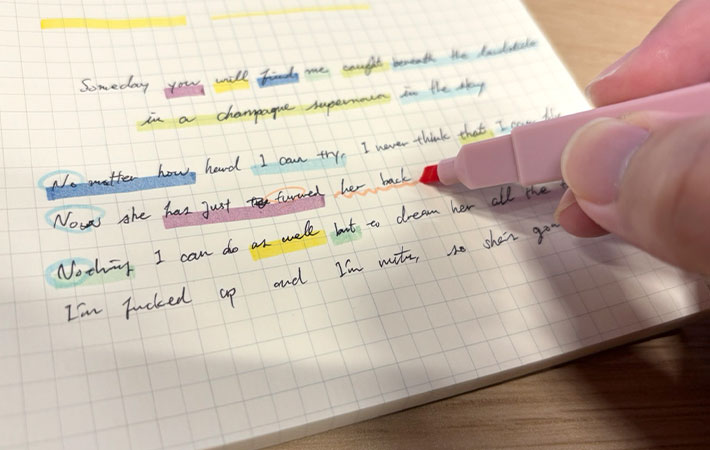 Someday you will find me caught beneath the landslide
in a champagne supernova in the sky
No matter how head I can try, I never think that I can
Now she has just turned her back
Nothing I can do as well but to dream her all the
I'm fucked up and I'm mute, so she's